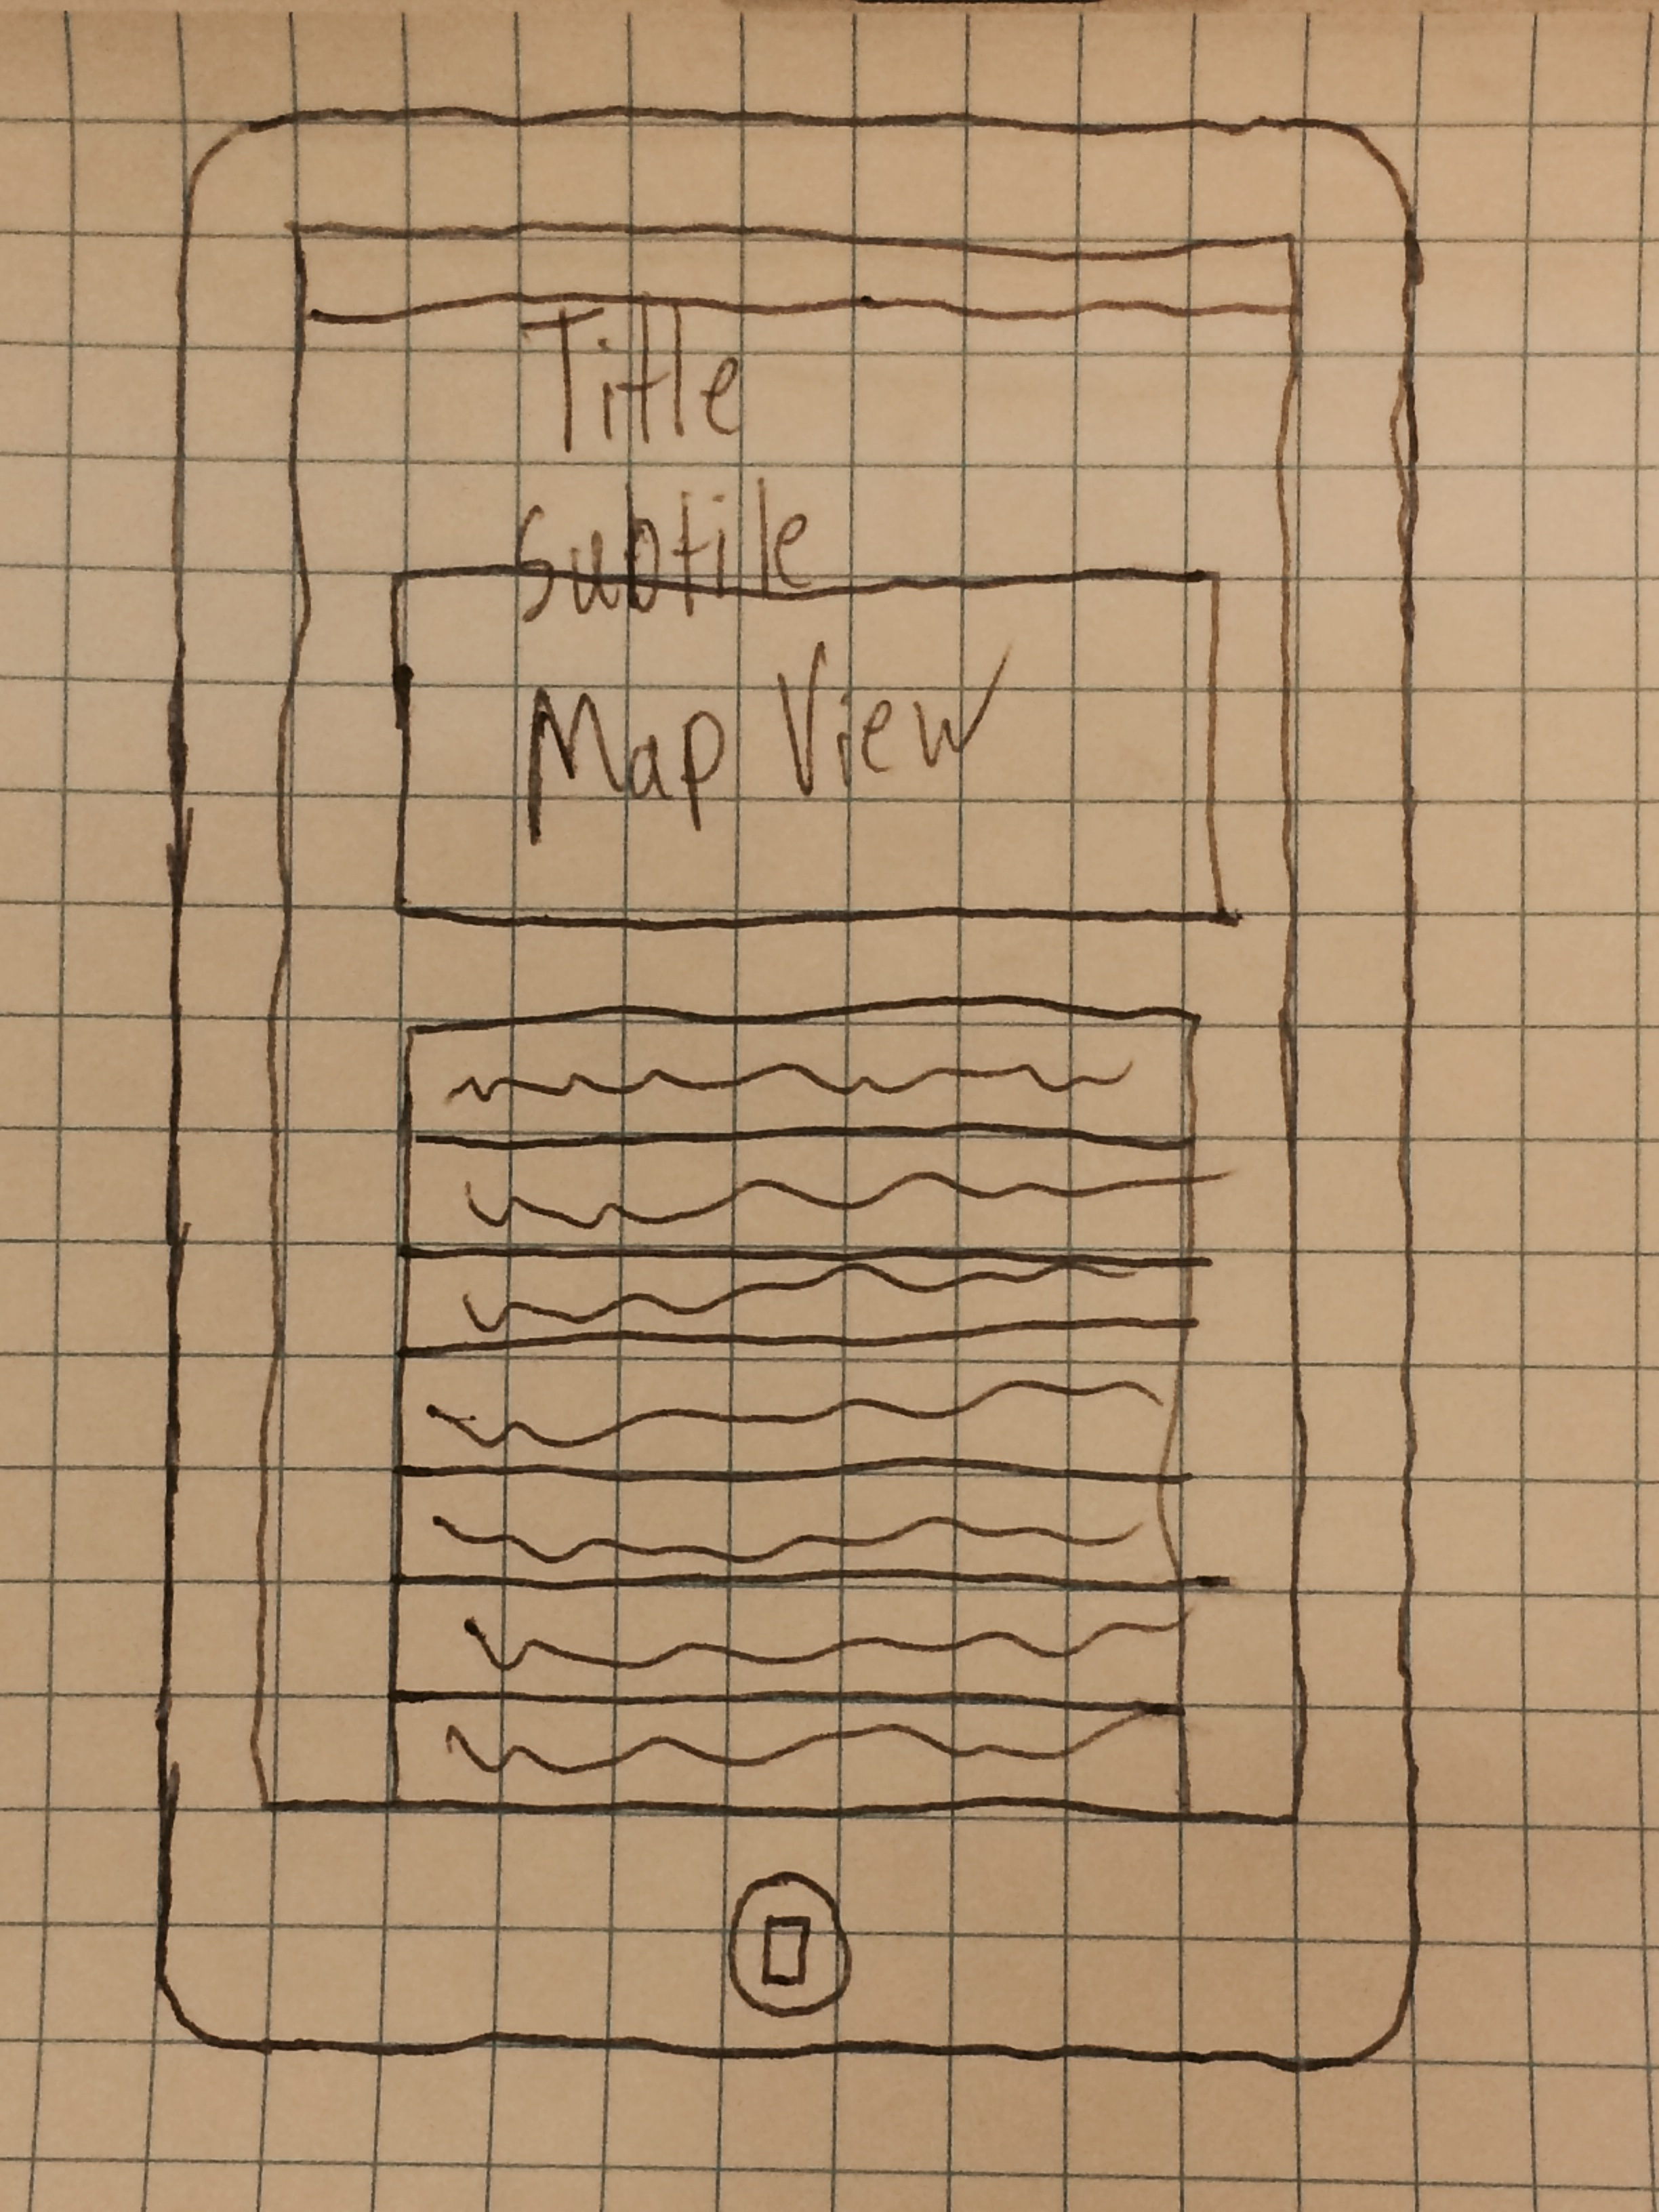 Title
Subtile
Map View